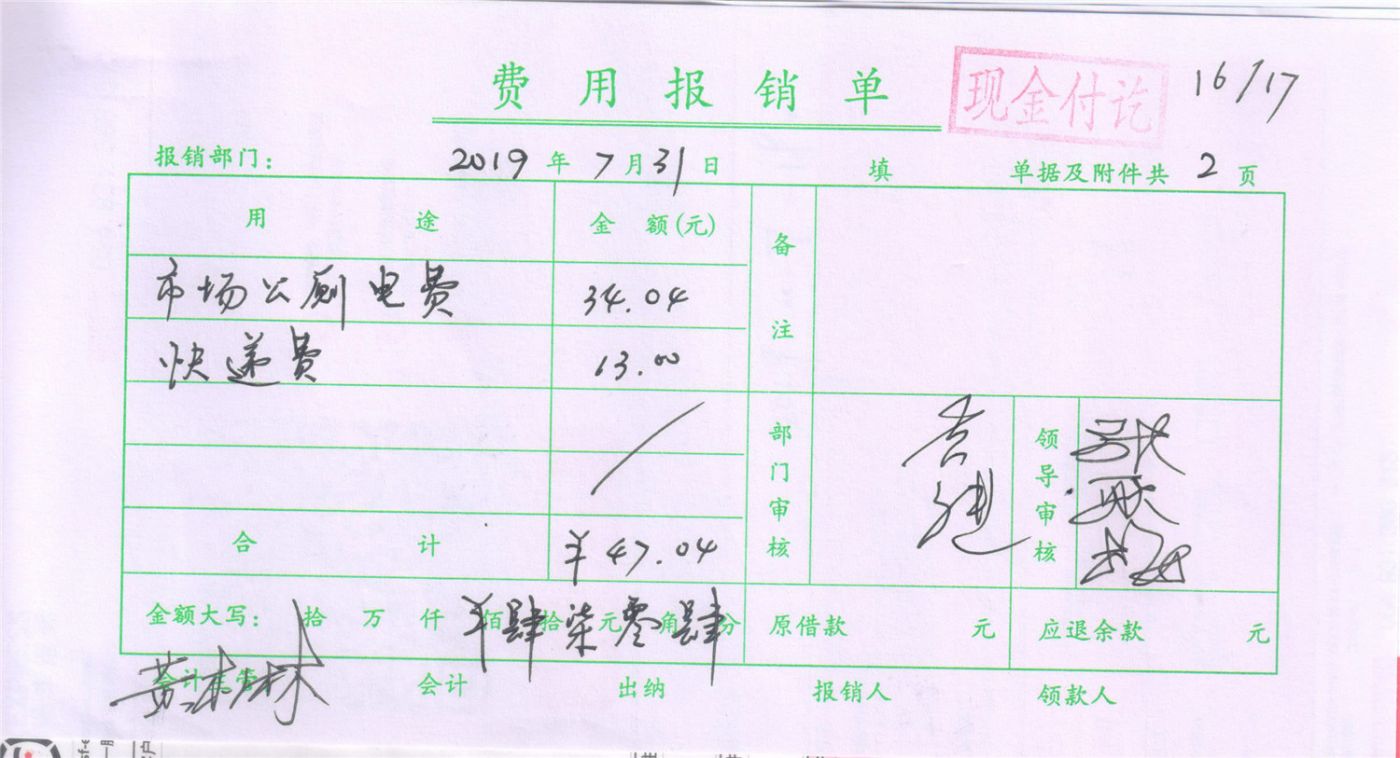 费用报销单
现金付讫
16/17
报销部门: 2019年7月31日 填 单据及附件共 2 页
用途 金额(元) 备注
市场公厕电费 34.04
快递费 13.00
部门审核 领导审核
合计 ¥47.04
金额大写: 拾 万 仟 ¥ 佰 肆 拾 柒 元 零 角 肆 分 原借款 元 应退余款 元
会计 出纳 报销人 领款人